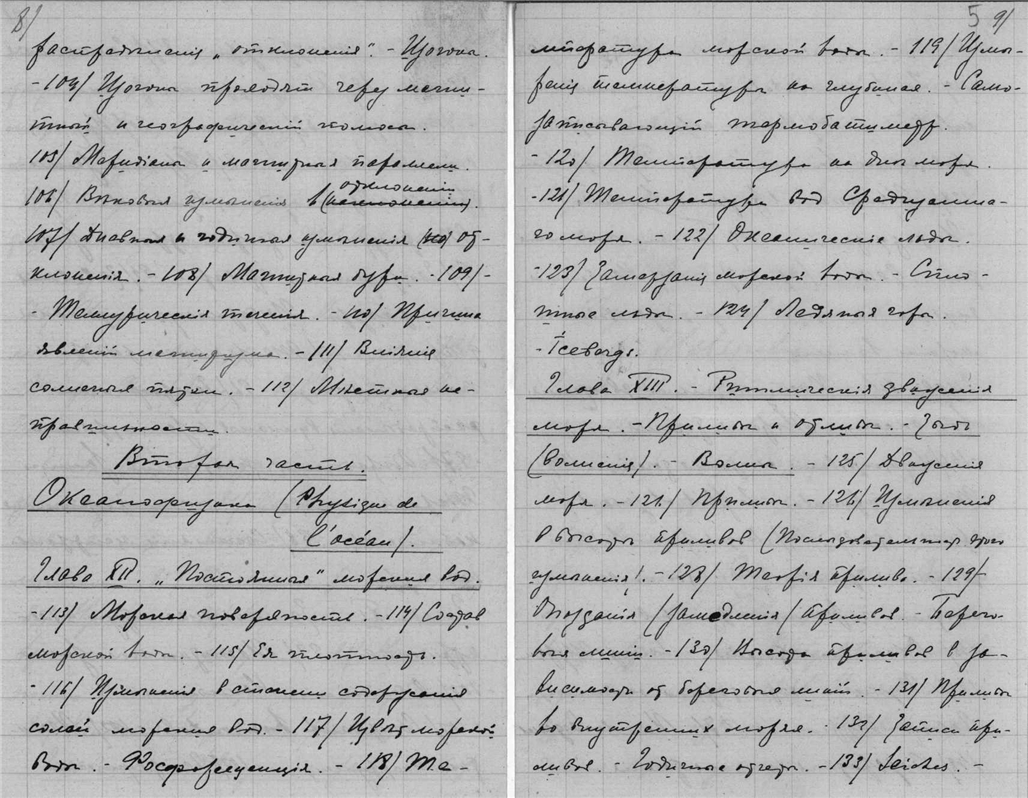 8/
распредѣленія „отклоненія“. - Изогоны.
- 104/ Изогоны проходятъ через магни-
тный и географическій полюсы.
105/ Меридіаны и магнитныя параллели.
106/ Вѣковыя измѣненія в отклоненіи (наклоненіи).
107/ Дневныя и годичныя измѣненія от-
клоненія. - 108/ Магнитныя бури. - 109/ -
- Теллурическія теченія. - 110/ Причина
явленій магнетизма. - 111/ Вліяніе
солнечныя пятен. - 112/ Мѣстныя не-
правильности.
Вторая часть.
Океанофизика (Physique de
l'océan).
Глава XII. „Постоянныя“ морския вод.
- 113/ Морская поверхность. - 114/ Состав
морской воды. - 115/ Ея плотность.
- 116/ Измѣненія в степени содержания
солей морския вод. - 117/ Цвѣт морской
воды. - Фосфоресценція. - 118/ Те-
5 9/
мпература морской воды. - 119/ Измѣ-
реніе температуры на глубинах. - Само-
записывающій термобатиметр.
- 120/ Температура на днѣ моря.
- 121/ Температура вод Средиземна-
го моря. - 122/ Океаническіе льды.
- 123/ Замерзаніе морской воды. - Спло-
тные льды. - 124/ Ледяныя горы.
- Icebergs.
Глава XIII. - Ритмическія движенія
моря. - Приливы и отливы. - Зыбь
(волненія). - Волны. - 125/ Движенія
моря. - 126/ Приливы. - 126/ Измѣненія
в высотѣ приливов (Послѣдовательныя
измѣненія). - 128/ Теорія прилива. - 129/
Опозданія (замедленія) приливов. - Берего-
выя линіи. - 130/ Высота приливов в за-
висимости от береговыя линій. - 131/ Приливы
во внутренних морях. - 132/ Записи при-
ливов. - Годичные - 133/ Seiches. -